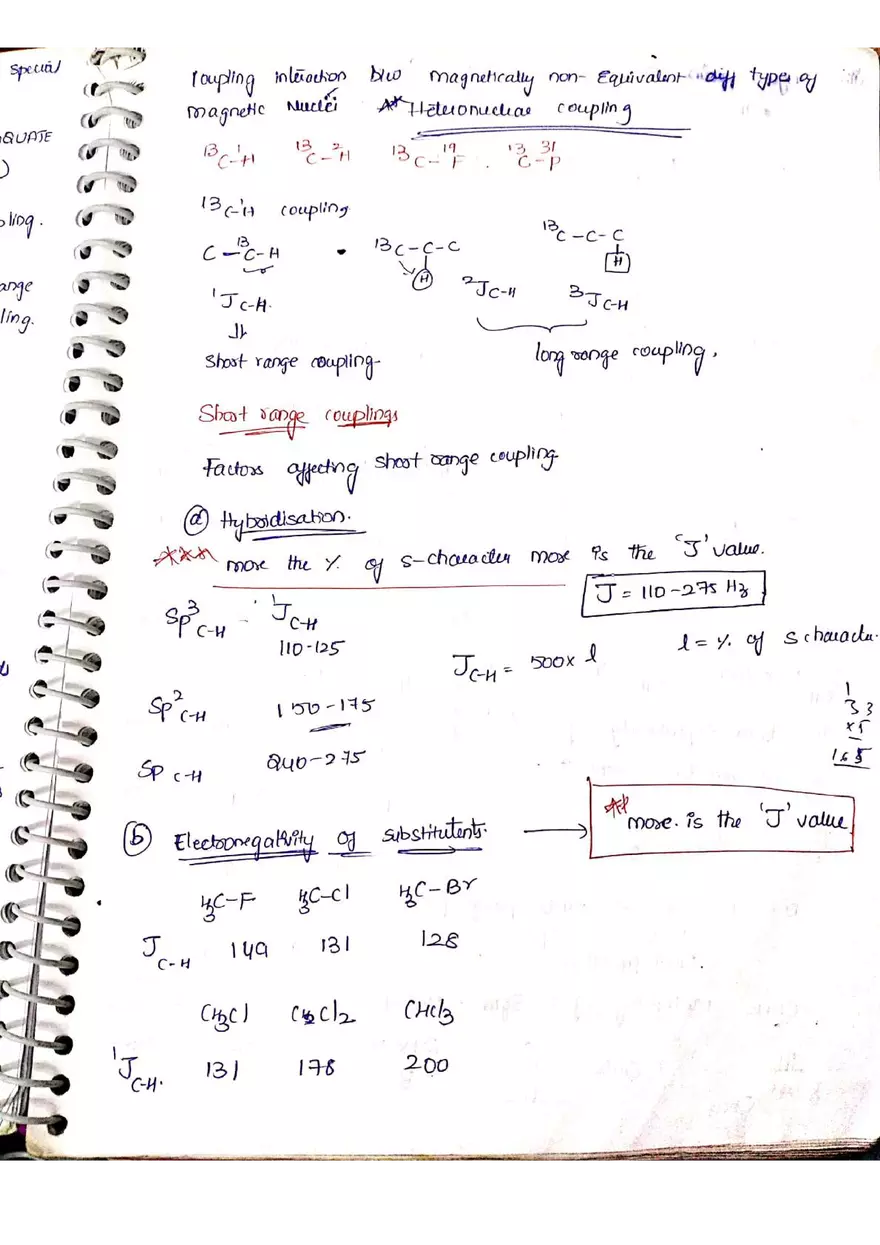 special
QUATE
)
pling.
ange
ling.
Coupling interaction b/w magnetically non-Equivalent diff types of
magnetic Nuclei ** Heteronuclear coupling
¹³C-¹H ¹³C-²H ¹³C-¹⁹F . ¹³C-³¹P
¹³C-¹H coupling
C-¹³C-H • ¹³C-C-C ¹³C-C-C
H H
¹J C-H. ²J C-H ³J C-H
⇓
Short range coupling- long range coupling.
Short range couplings
Factors affecting short range coupling
(a) Hybridisation.
*** more the % of s-character more is the 'J' value.
J = 110-275 Hz
Sp³ C-H - ¹J C-H
110-125
J C-H = 500x l l = % of s character.
Sp² C-H 150-175
1
33
x5
165
Sp C-H 240-275
(b) Electronegativity of substitutents. → ** more. is the 'J' value
H₃C-F H₃C-Cl H₃C-Br
J C-H 149 131 128
CH₃Cl CH₂Cl₂ CHCl₃
¹J C-H. 131 178 200